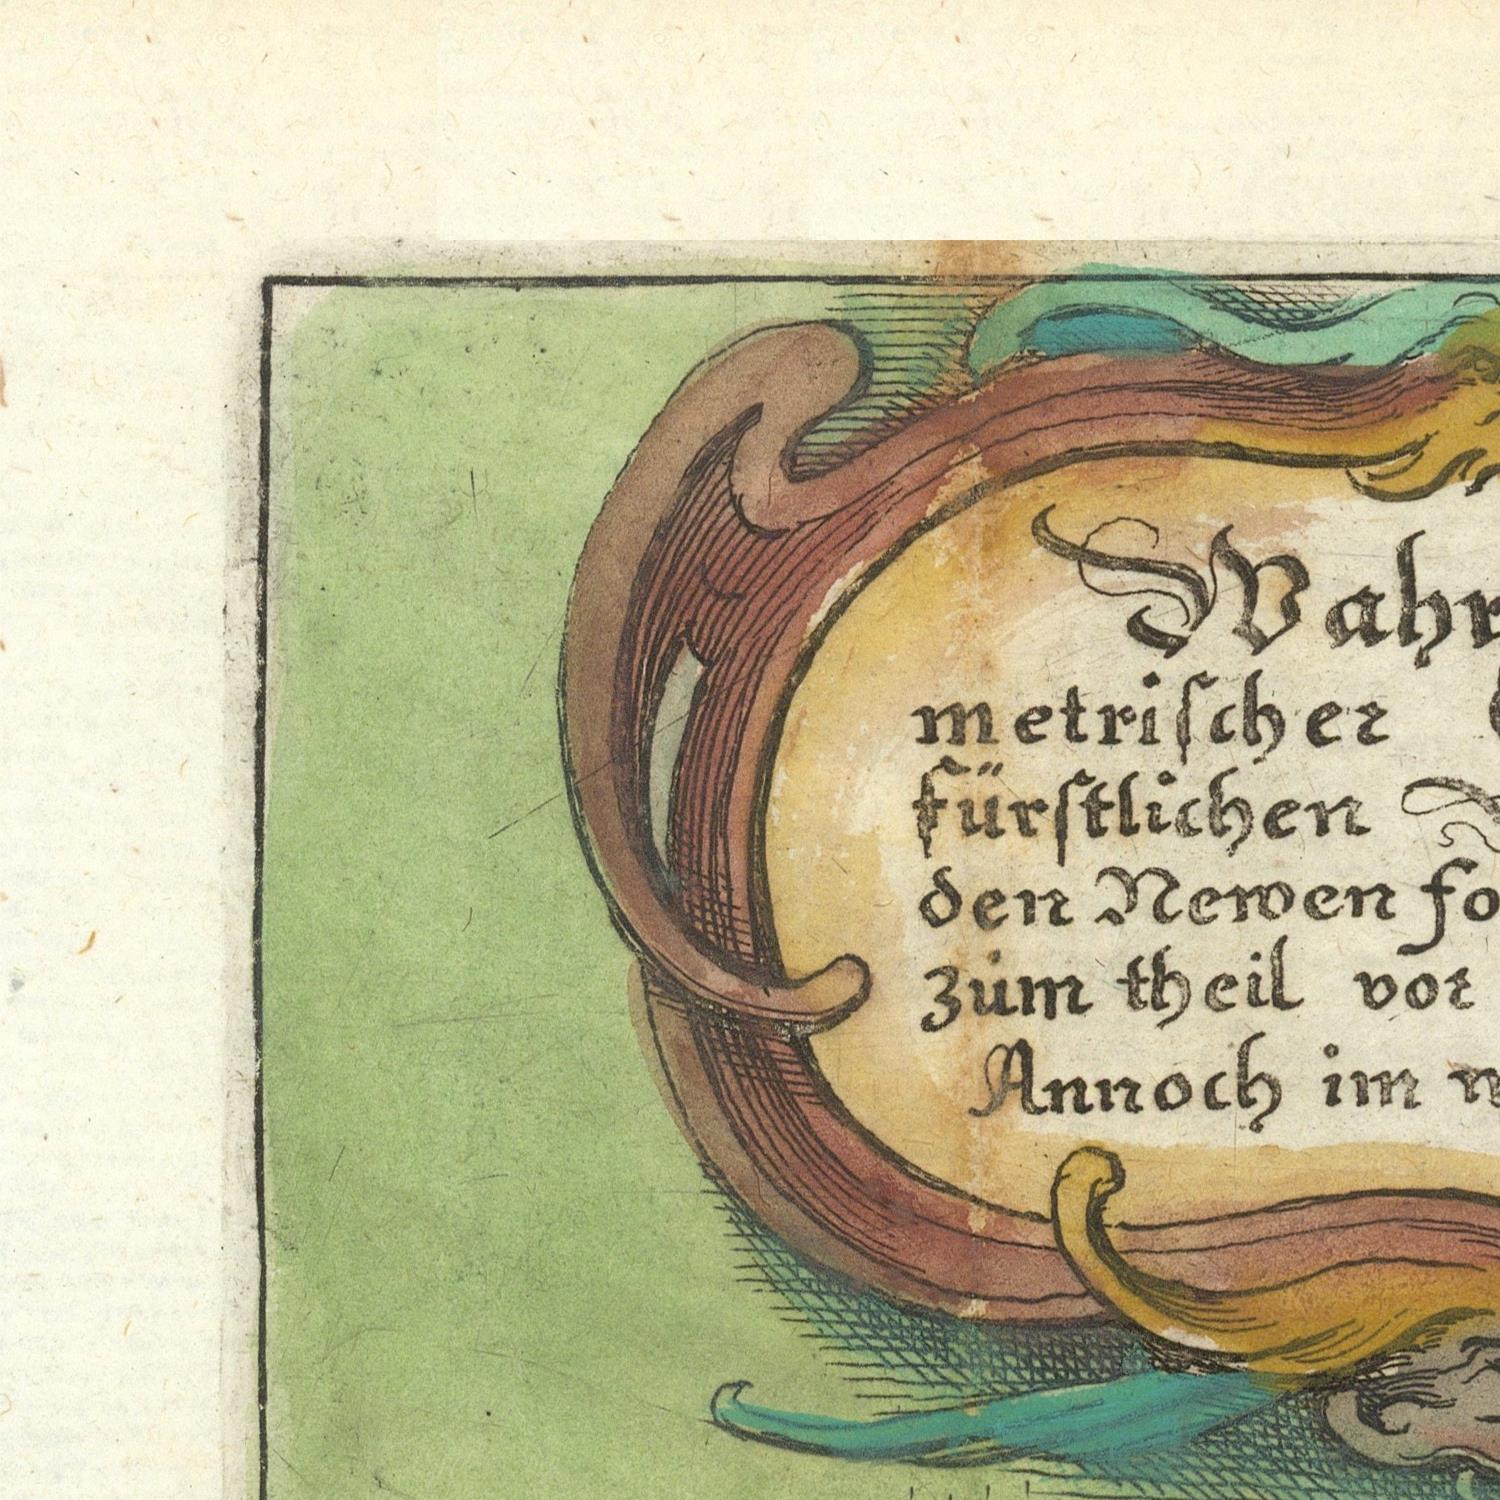 Wahr
metriſcher
fürſtlichen
den Newen fo
zúm theil vor
Annoch im